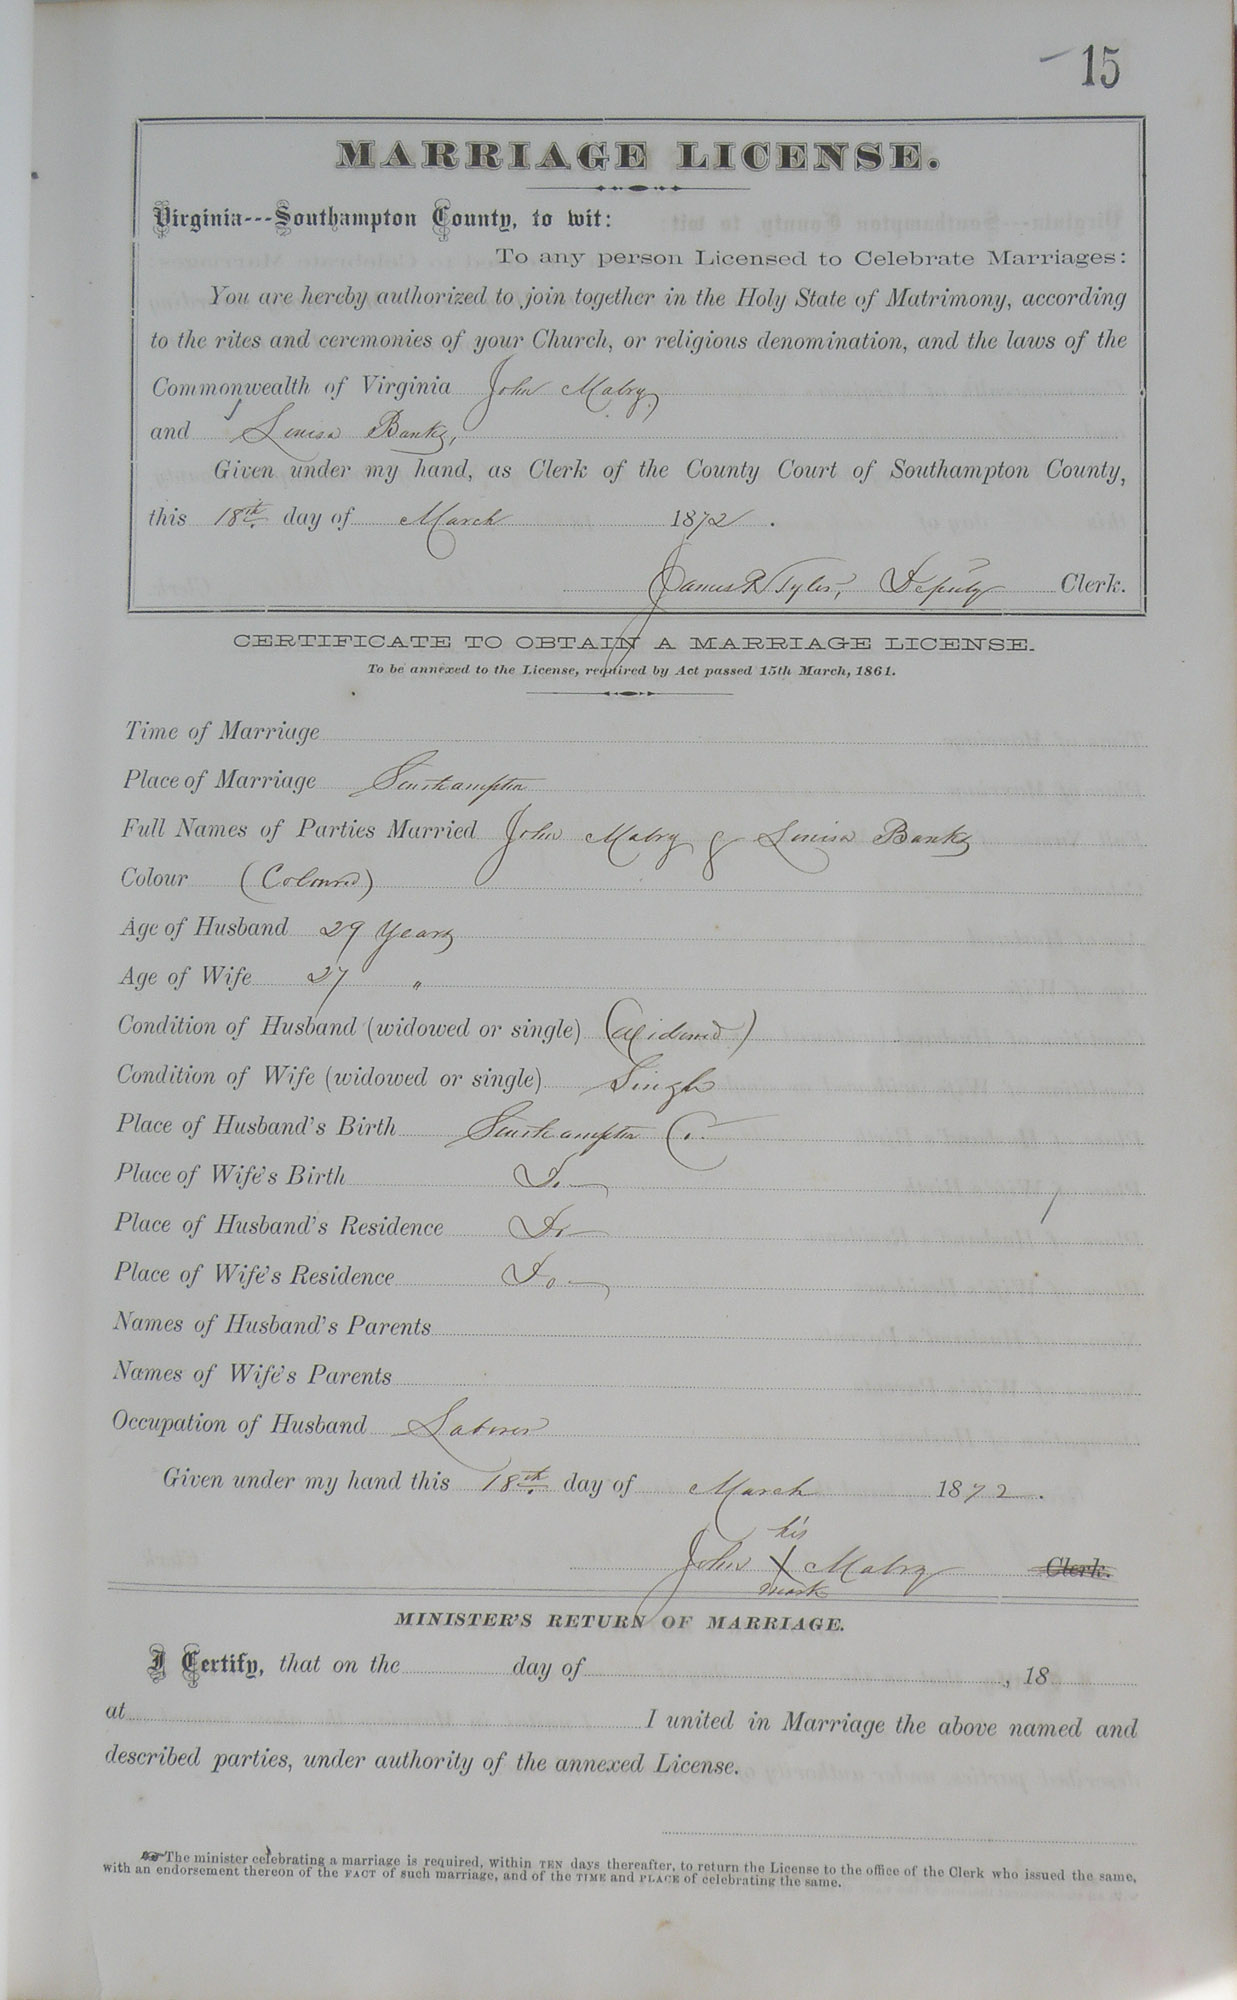 15
MARRIAGE LICENSE.
Virginia---Southampton County, to wit:
To any person Licensed to Celebrate Marriages:
You are hereby authorized to join together in the Holy State of Matrimony, according
to the rites and ceremonies of your Church, or religious denomination, and the laws of the
Commonwealth of Virginia John Mabry
and Louisa Banks,
Given under my hand, as Clerk of the County Court of Southampton County,
this 18th day of March 1872.
James R Tyler, Deputy Clerk.
CERTIFICATE TO OBTAIN A MARRIAGE LICENSE.
To be annexed to the License, required by Act passed 15th March, 1861.
Time of Marriage
Place of Marriage Southampton
Full Names of Parties Married John Mabry & Louisa Banks
Colour (Coloured)
Age of Husband 29 Years
Age of Wife 27 "
Condition of Husband (widowed or single) (Widowed)
Condition of Wife (widowed or single) Single
Place of Husband's Birth Southampton Co.
Place of Wife's Birth Do
Place of Husband's Residence Do
Place of Wife's Residence Do
Names of Husband's Parents
Names of Wife's Parents
Occupation of Husband Laborer
Given under my hand this 18th day of March 1872.
his
John X Mabry Clerk.
mark
MINISTER'S RETURN OF MARRIAGE.
I Certify, that on the day of , 18
at I united in Marriage the above named and
described parties, under authority of the annexed License.
☞The minister celebrating a marriage is required, within TEN days thereafter, to return the License to the office of the Clerk who issued the same,
with an endorsement thereon of the FACT of such marriage, and of the TIME and PLACE of celebrating the same.